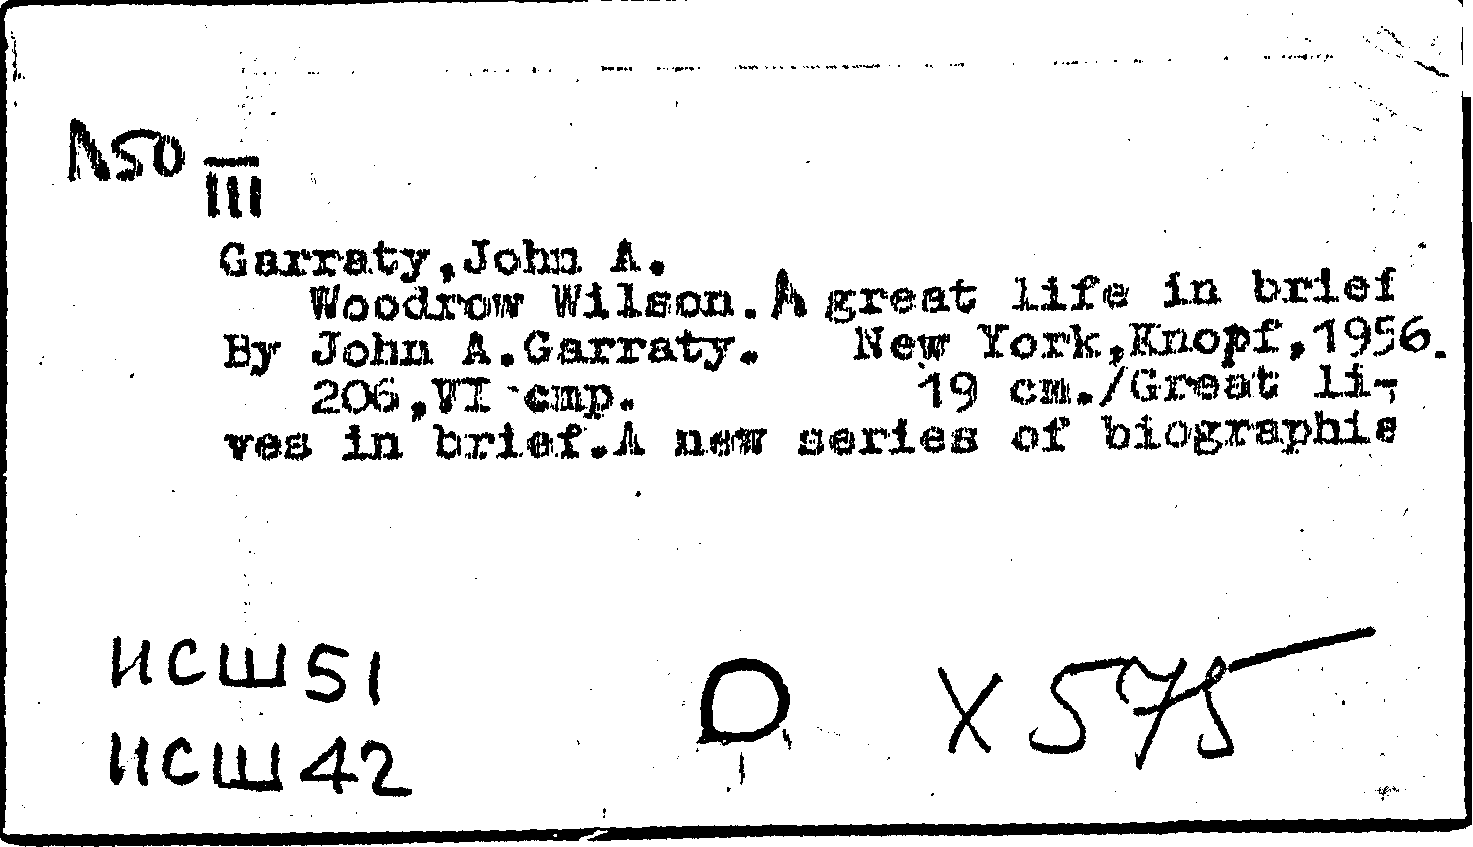 Λ50 III
Garraty,John A.
Woodrow Wilson. A great life in brief
By John A.Garraty. New York,Knopf,1956.
206,VI стр. 19 cm./Great li-
ves in brief.A new series of biographie
ИСШ 51
X 575
ИСШ 42